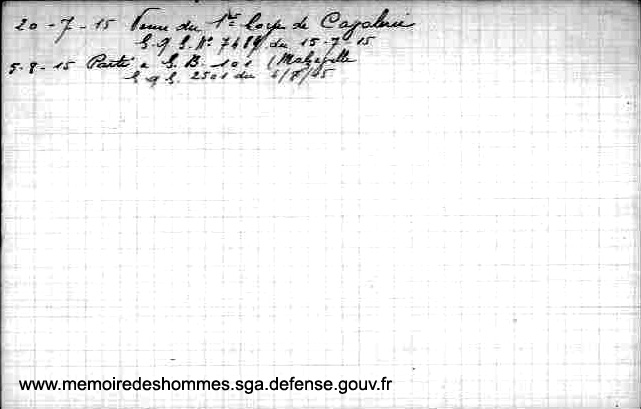 20-7-15 Venu du 1er Corps de Cavalerie
G.Q.G. No 7489 du 15-7-15
5-8-15 Parti à G.B. 101 (Malzéville
G.Q.G. 2501 du /15
www.memoiredeshommes.sga.defense.gouv.fr